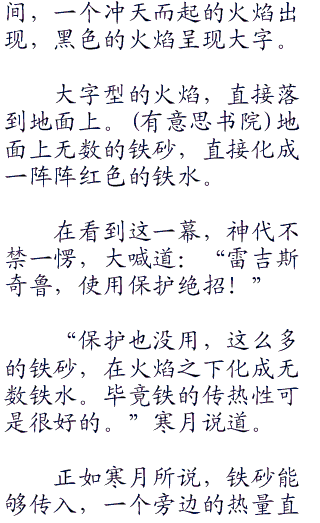 间，一个冲天而起的火焰出
现，黑色的火焰呈现大字。
大字型的火焰，直接落
到地面上。(有意思书院)地
面上无数的铁砂，直接化成
一阵阵红色的铁水。
在看到这一幕，神代不
禁一愣，大喊道：“雷吉斯
奇鲁，使用保护绝招！”
“保护也没用，这么多
的铁砂，在火焰之下化成无
数铁水。毕竟铁的传热性可
是很好的。”寒月说道。
正如寒月所说，铁砂能
够传入，一个旁边的热量直